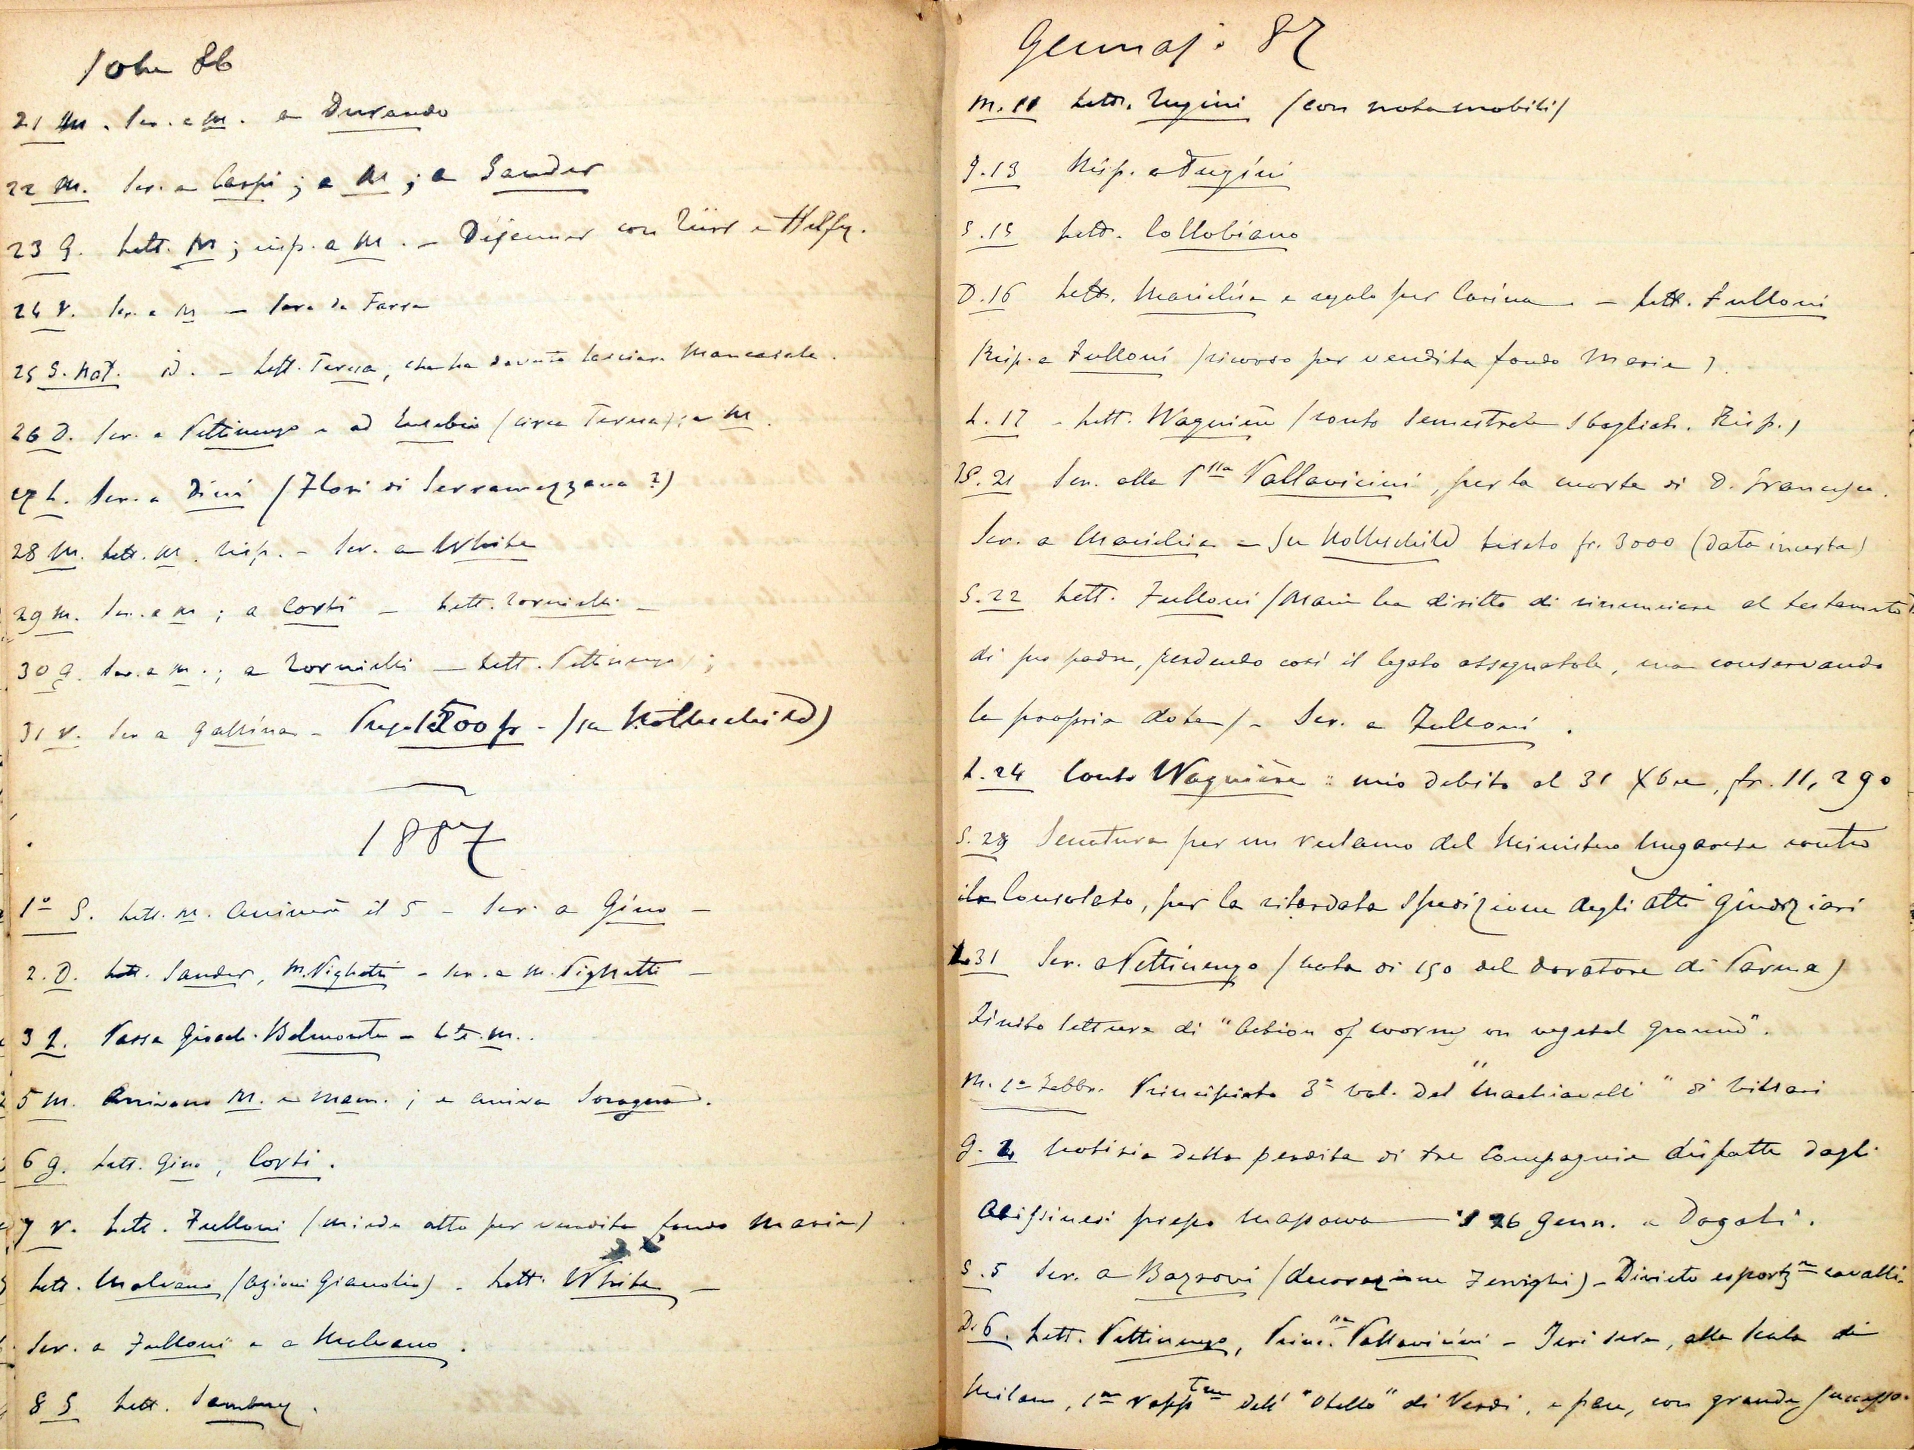 Xbre 86
21 M. Scr. a M. a Durando
22 M. Scr. a Carpi ; a M ; a Sander
23 G. Lett. M ; risp. a M. - Déjeuner con Türr e Helfy.
24 V. Scr. a M - Sera da Farra
25 S. Nat. id. - Lett. Teresa, che ha dovuto lasciare Mancasale.
26 D. Scr. a Pettinengo e ad Eusebio (circa Teresa) ; a M.
27 L. Scr. a Dini (Flori di Serravezzana ?)
28 M. Lett. M. risp. - Scr. a White
29 M. Scr. a M ; a Corti - Lett. Zornichi -
30 G. Scr. a M. ; a Zornichi - Lett. Pettinengo ;
31 V. Scr a Gallina - 500 fr - (su Rothschild)
1887
1º S. Lett. M. arriverà il 5 - Scr. a Gino -
2. D. Lett. Sander, M. Vighetti - Scr. a M. Vighetti -
3 L. Passa Gioach. Belmonte - Lett. M..
5 M. Arrivano M. e Mam. ; e arriva Soragna.
6 G. Lett. Gino, Corti.
7 V. Lett. Fulloni (invia atto per vendita fondo Maria)
Lett. Malvano (Azioni Gianolio) - Lett. White -
Scr. a Fulloni e a Malvano.
8 S Lett. .
Gennajo 87
M. 11 Lett. Tugini (con nota mobili)
G. 13 Risp. a Tugini
S. 15 Lett. Collobiano
D. 16 Lett. Mariclia e regalo per Carina - Lett. Fulloni
Risp. a Fulloni (ricorso per vendita fondo Maria).
L. 17 - Lett. Wagnière (conto semestrale sbagliato. Risp.)
21 Scr. alla Pssa Pallavicini, per la morte di D. Francesco.
Scr. a Mariclia - Su Rothschild tirato fr. 3000 (data incerta)
S. 22 Lett. Fulloni (Maria ha diritto di rinunciare al testamento
di suo padre, perdendo così il legato assegnatole, ma conservando
la propria dote) - Scr. a Fulloni.
L. 24 Conto Wagnière : mio debito al 31 Xbre, fr. 11,290
S. 29 Seccatura per un reclamo del Ministro Ungarese contro
il Consolato, per la ritardata spedizione degli atti giudiziari
L. 31 Scr. a Pettinengo (nota di 150 del doratore di Parma)
Finito lettura di "Action of worms on vegetal ground".
M. 1º Febbr. Principiato 3º vol. del "Machiavelli" di Villari
G. Notizia della perdita di tre Compagnie disfatte dagli
Abissinesi presso Massowa - il 26 Genn. a Dogali.
S. 5 Scr. a Bazzoni (decorazione ) - Divieto esportzne cavalli.
D. 6. Lett. Pettinengo, Princ.ssa Pallavicini - Jeri sera, alla Scala di
Milano, 1a rapptne dell' "Otello" di Verdi, e pare, con grande successo.